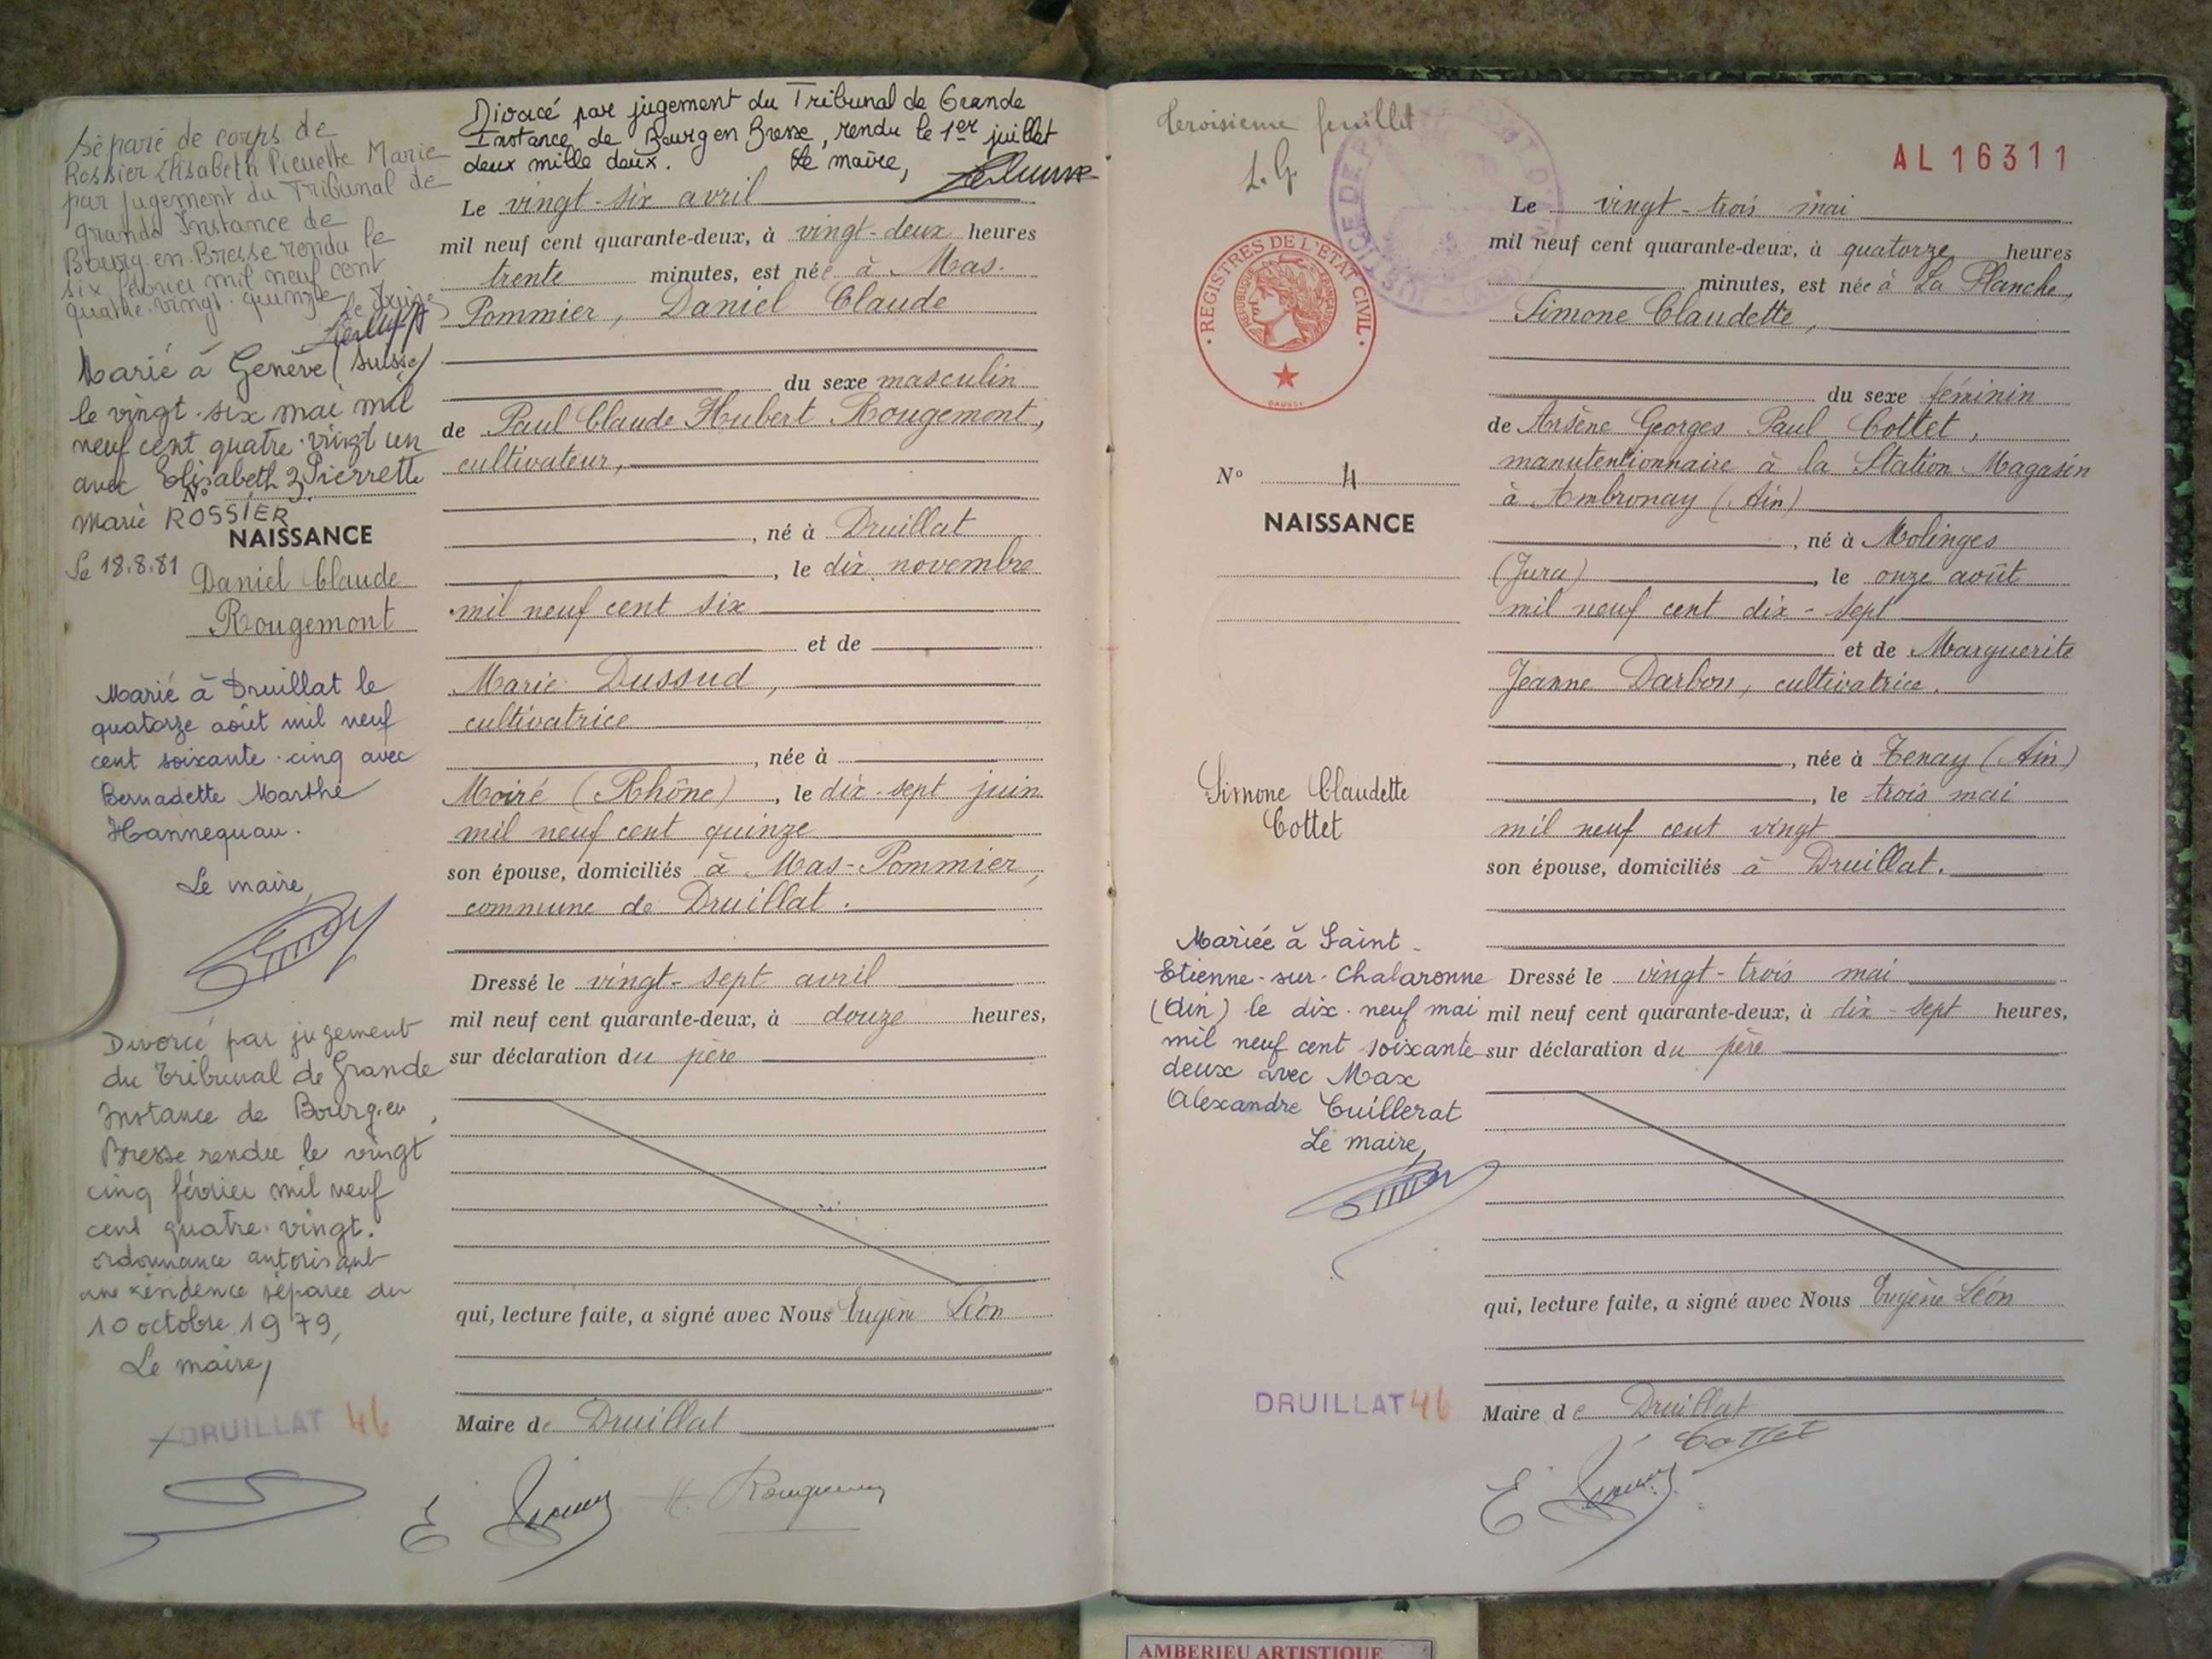 Séparé de corps de
Rossier Elisabeth Pierrette Marie
par jugement du Tribunal de
grande Instance de
Bourg-en-Bresse rendu le
six février mil neuf cent
quatre-vingt-quinze
Le Maire
Marié à Genève (Suisse)
le vingt-six mai mil
neuf cent quatre-vingt un
avec Elisabeth Pierrette
Marie ROSSIER
Le 18.8.81
N° 3
NAISSANCE
Daniel Claude
Rougemont
Marié à Druillat le
quatorze août mil neuf
cent soixante-cinq avec
Bernadette Marthe
Hannequau.
Le maire,
Divorcé par jugement
du Tribunal de Grande
Instance de Bourg-en
Bresse rendu le vingt
cinq février mil neuf
cent quatre-vingt.
ordonnance autorisant
une résidence séparée du
10 octobre 1979,
Le maire,
DRUILLAT 46
Divorcé par jugement du Tribunal de Grande
Instance de Bourg en Bresse, rendu le 1er juillet
deux mille deux. Le maire,
Le vingt-six avril
mil neuf cent quarante-deux, à vingt-deux heures
trente minutes, est né à Mas-
Pommier, Daniel Claude
du sexe masculin
de Paul Claude Hubert Rougemont,
cultivateur,
, né à Druillat
, le dix novembre
mil neuf cent six
et de
Marie Dussud,
cultivatrice
, née à
Moiré (Rhône), le dix-sept juin
mil neuf cent quinze
son épouse, domiciliés à Mas-Pommier,
commune de Druillat.
Dressé le vingt-sept avril
mil neuf cent quarante-deux, à douze heures,
sur déclaration du père
qui, lecture faite, a signé avec Nous Eugène Léon
Maire de Druillat
troisieme feuillet
L. G.
REGISTRES DE L'ETAT CIVIL
REPUBLIQUE FRANCAISE
N° 4
NAISSANCE
Simone Claudette
Cottet
Mariée à Saint-
Etienne-sur-Chalaronne
(Ain) le dix-neuf mai
mil neuf cent soixante
deux avec Max
Alexandre Cuillerat
Le maire,
DRUILLAT 46
AL 16311
Le vingt-trois mai
mil neuf cent quarante-deux, à quatorze heures
minutes, est née à La Planche,
Simone Claudette,
du sexe féminin
de Arsène Georges Paul Cottet,
manutentionnaire à la Station-Magasin
à Ambronay (Ain)
, né à Molinges
(Jura), le onze août
mil neuf cent dix-sept
et de Marguerite
Jeanne Darbon, cultivatrice.
, née à Tenay (Ain)
, le trois mai
mil neuf cent vingt
son épouse, domiciliés à Druillat.
Dressé le vingt-trois mai
mil neuf cent quarante-deux, à dix-sept heures,
sur déclaration du père
qui, lecture faite, a signé avec Nous Eugène Léon
Maire de Druillat
Cottet
AMBERIEU ARTISTIQUE